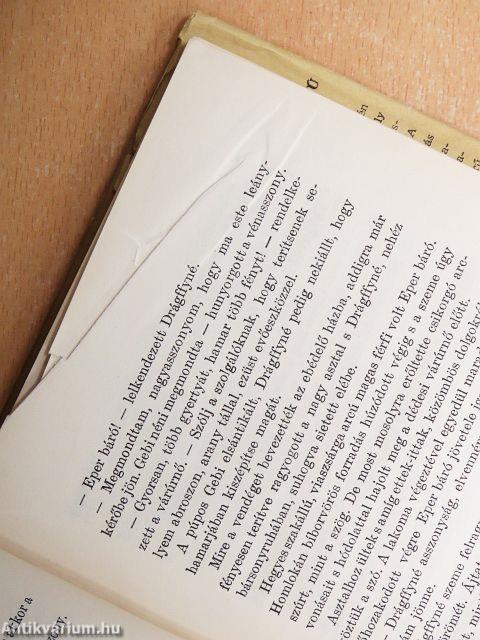 — Eper báró! — lelkendezett Drágffyné.
— Megmondtam, nagyasszonyom, hogy ma este leány-
kérőbe jön. Gebi néni megmondta — hunyorgott a rénasszony.
— Gyorsan, több gyertyát, hamar több fényt! — rendelke-
zett a várúrnő. — Szólj a szolgálóknak, hogy terítsenek se-
lyem abroszon, arany tállal, ezüst evőeszközzel.
A púpos Gebi elsántikált, Drágffyné pedig nekiállt, hogy
hamarjában kiszépítse magát.
Mire a vendéget bevezették az ebédelő házba, addigra már
fényesen terítve ragyogott a nagy asztal s Drágffyné, nehéz
bársonyruhában, suhogva sietett eléje.
Hegyes szakállú, viaszsárga arcú magas férfi volt Eper báró.
Homlokán bíborvörös forradás húzódott végig s a szeme úgy
szúrt, mint a szög. De most mosolyra erőltette csikorgó arc-
vonásait s hódolattal hajolt meg a dédesi várúrnő előtt.
Asztalhoz ültek s amíg ettek-ittak, közömbös dolgokról
szó. A lakoma végeztével egyedül marad
végre Eper báró jövetele
Drágffyné asszonyság, elrenn
jönne.
szeme felrag
Ajtat
Ű
A
Antikvárium.hu